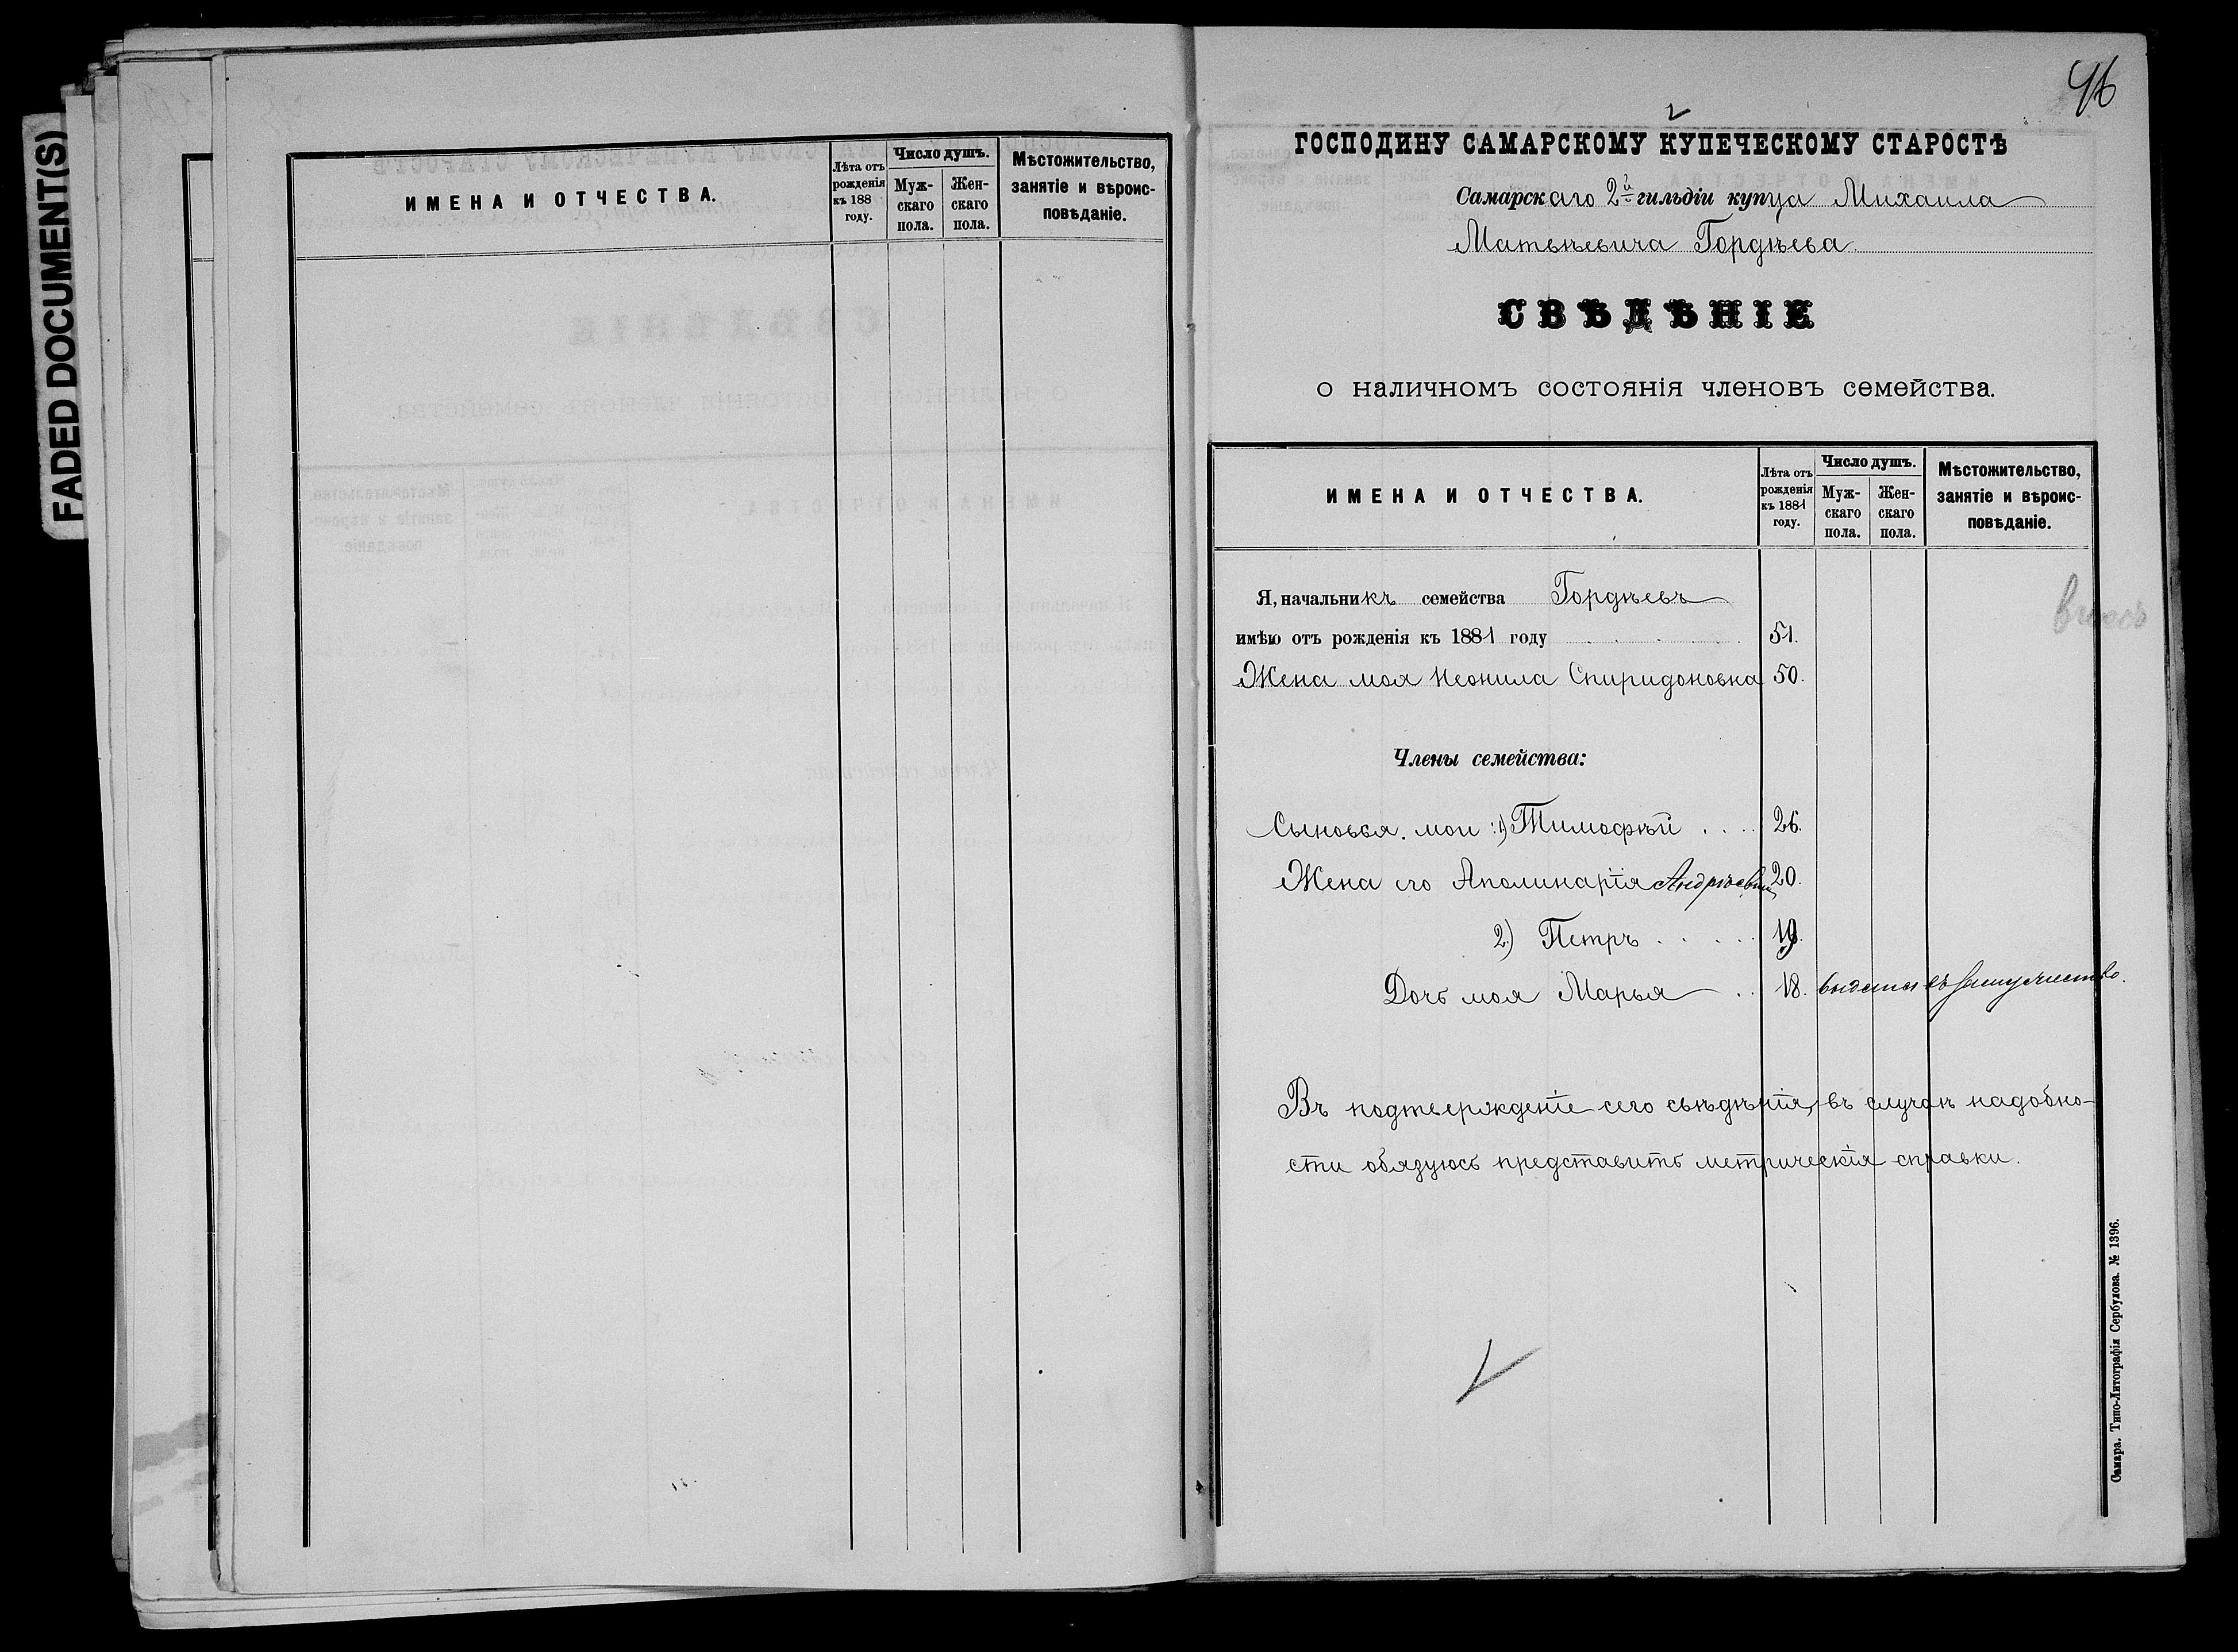 FADED DOCUMENT(S)
ИМЕНА И ОТЧЕСТВА.
Лѣта отъ рожденія къ 188 году.
Число душъ.
Мужскаго пола.
Женскаго пола.
Мѣстожительство, занятіе и вѣроисповѣданіе.
46
ГОСПОДИНУ САМАРСКОМУ КУПЕЧЕСКОМУ СТАРОСТѢ
Самарскаго 2й гильдіи купца Михаила
Матвѣевича Гордѣева
СВѢДѢНІЕ
о наличномъ состоянія членовъ семейства.
ИМЕНА И ОТЧЕСТВА.
Лѣта отъ
рожденія
къ 1881
году.
Число душъ.
Муж-
скаго
пола.
Жен-
скаго
пола.
Мѣстожительство,
занятіе и вѣроис-
повѣданіе.
Я, начальникъ семейства Гордѣевъ
имѣю отъ рожденія къ 1881 году 51.
Жена моя Неонила Спиридоновна 50.
Члены семейства:
Сыновья мои: 1) Тимофѣй . . . . 26.
Жена его Аполинарія 20.
2) Петръ . . . . . 19.
Дочь моя Марья . . 18. выдана въ замужество.
Въ подтвержденіе сего свѣдѣнія, въ случаѣ надобно-
сти обязуюсь представить метрическія справки.
Самара. Типо-Литографія Сербулова. № 1396.